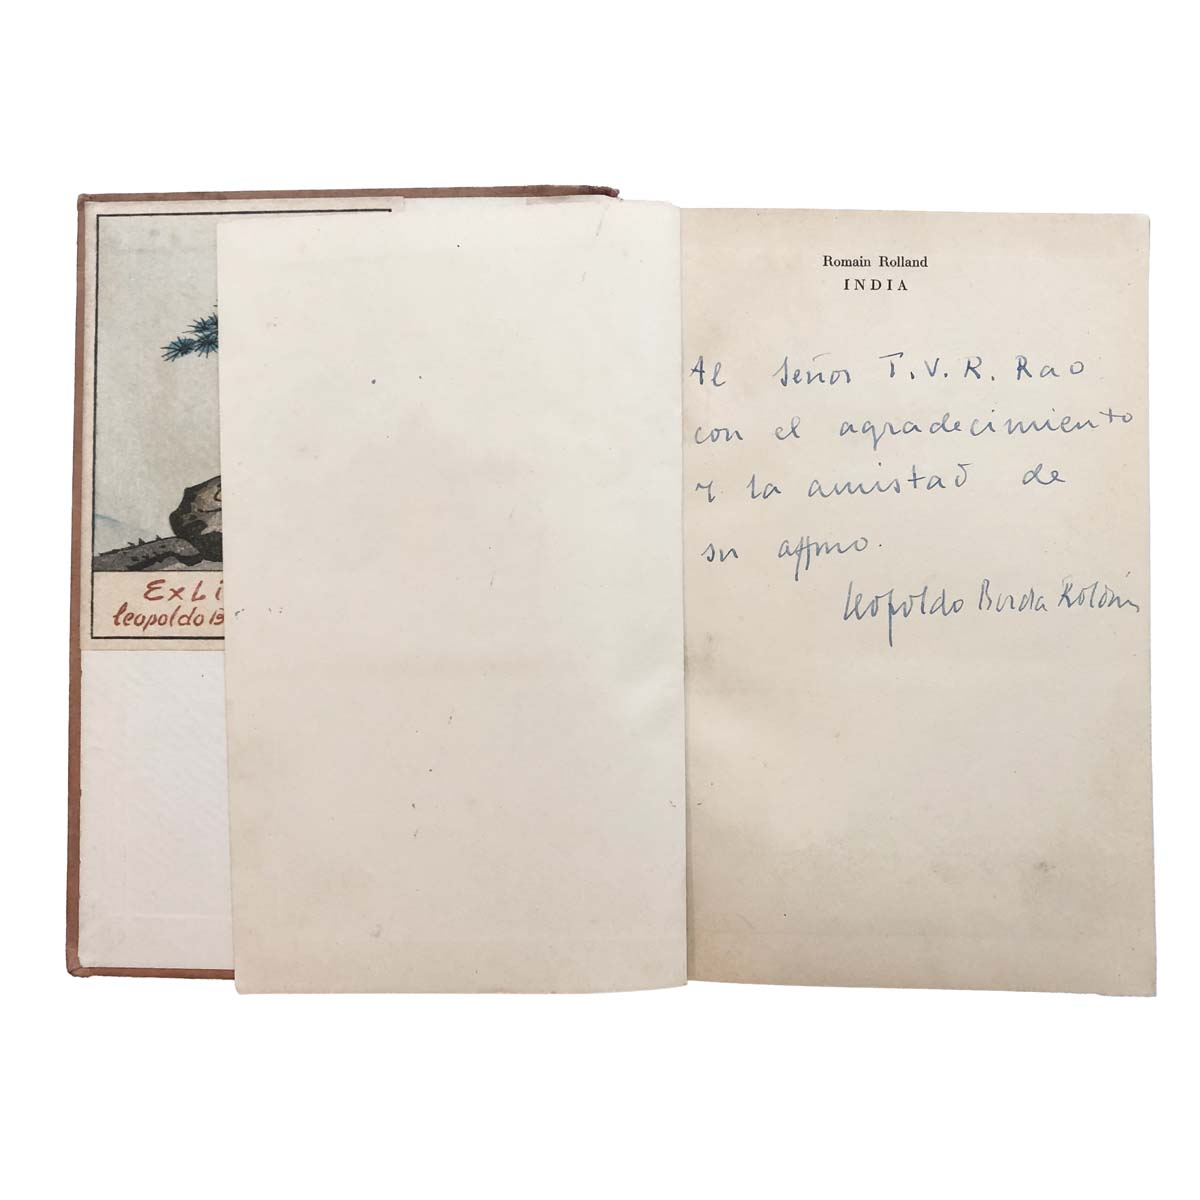 Ex Li
leopoldo B
Romain Rolland
INDIA
Al Señor T.V.R. Rao
con el agradecimiento
y la amistad de
su affmo.
Leopoldo Borda Roldán